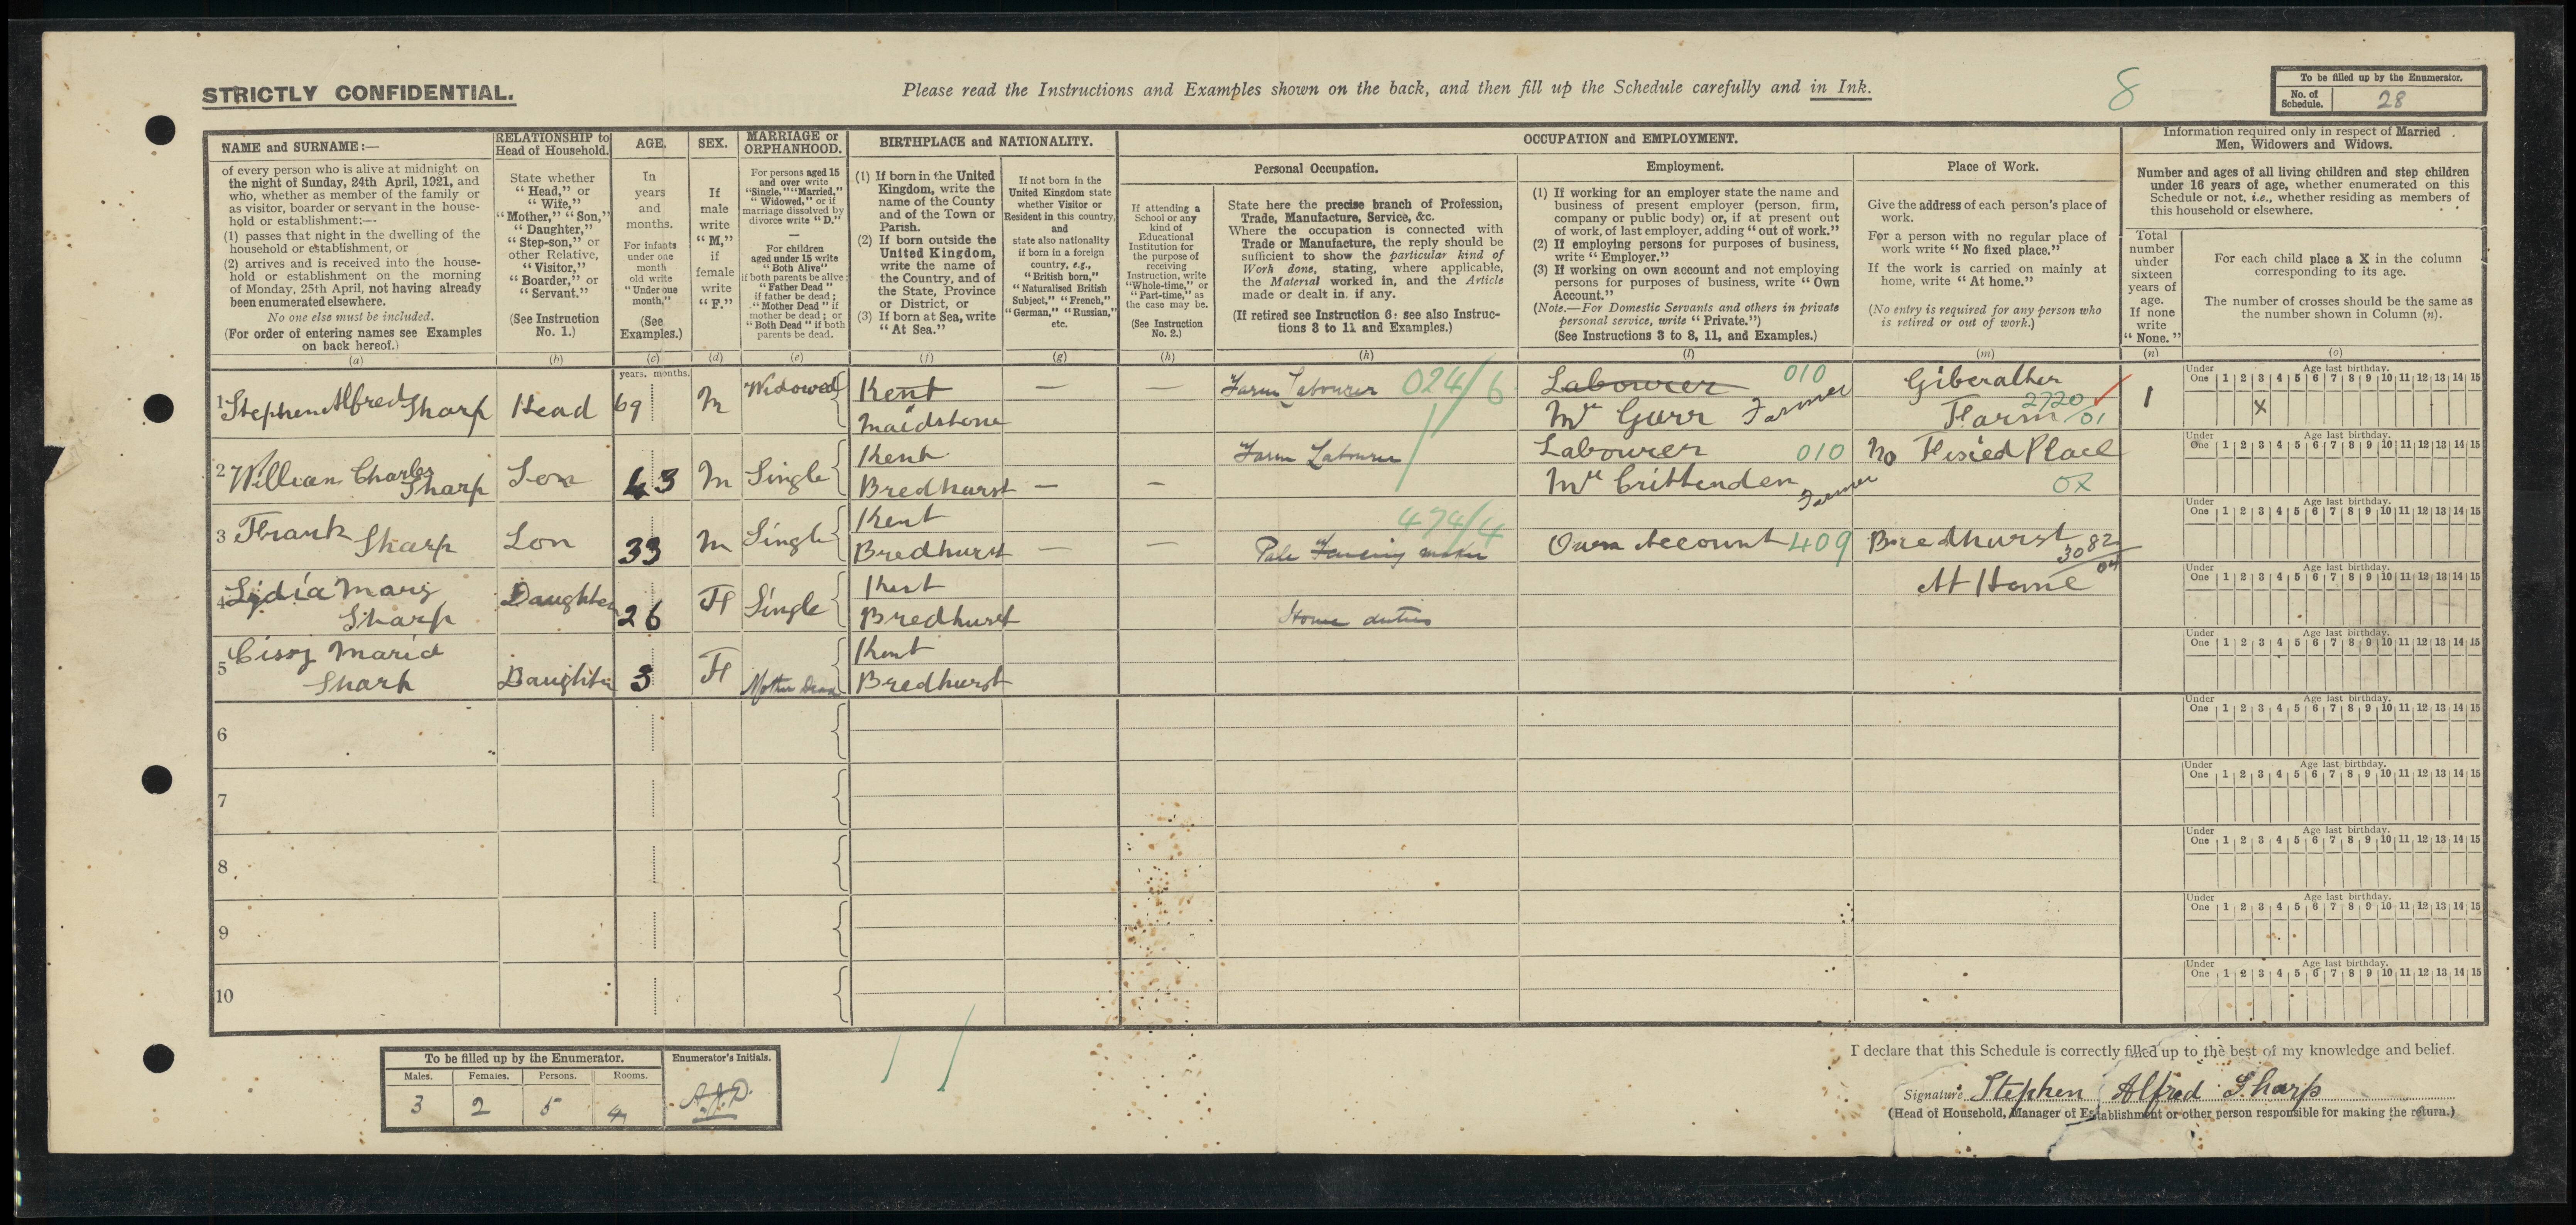 STRICTLY CONFIDENTIAL.
Please read the Instructions and Examples shown on the back, and then fill up the Schedule carefully and in Ink.
8
To be filled up by the Enumerator.
No. of Schedule. 28
NAME and SURNAME:—
of every person who is alive at midnight on
the night of Sunday, 24th April, 1921, and
who, whether as member of the family or
as visitor, boarder or servant in the house-
hold or establishment:—
(1) passes that night in the dwelling of the
household or establishment, or
(2) arrives and is received into the house-
hold or establishment on the morning
of Monday, 25th April, not having already
been enumerated elsewhere.
No one else must be included.
(For order of entering names see Examples
on back hereof.)
(a)
RELATIONSHIP to
Head of Household.
State whether
"Head," or
"Wife,"
"Mother," "Son,"
"Daughter,"
"Step-son," or
other Relative,
"Visitor,"
"Boarder," or
"Servant."
(See Instruction
No. 1.)
(b)
AGE.
In
years
and
months.
For infants
under one
month
old write
"Under one
month."
(See
Examples.)
(c)
SEX.
If
male
write
"M,"
if
female
write
"F."
(d)
MARRIAGE or
ORPHANHOOD.
For persons aged 15
and over write
"Single," "Married,"
"Widowed," or if
marriage dissolved by
divorce write "D."
—
For children
aged under 15 write
"Both Alive"
if both parents be alive;
"Father Dead"
if father be dead;
"Mother Dead" if
mother be dead; or
"Both Dead" if both
parents be dead.
(e)
BIRTHPLACE and NATIONALITY.
(1) If born in the United
Kingdom, write the
name of the County
and of the Town or
Parish.
(2) If born outside the
United Kingdom,
write the name of
the Country, and of
the State, Province
or District, or
(3) If born at Sea, write
"At Sea."
(f)
If not born in the
United Kingdom state
whether Visitor or
Resident in this country,
and
state also nationality
if born in a foreign
country, e.g.,
"British born,"
"Naturalised British
Subject," "French,"
"German," "Russian,"
etc.
(g)
OCCUPATION and EMPLOYMENT.
If attending a
School or any
kind of
Educational
Institution for
the purpose of
receiving
Instruction, write
"Whole-time," or
"Part-time," as
the case may be.
(See Instruction
No. 2.)
(h)
Personal Occupation.
State here the precise branch of Profession,
Trade, Manufacture, Service, &c.
Where the occupation is connected with
Trade or Manufacture, the reply should be
sufficient to show the particular kind of
Work done, stating, where applicable,
the Material worked in, and the Article
made or dealt in. if any.
(If retired see Instruction 6: see also Instruc-
tions 3 to 11 and Examples.)
(k)
Employment.
(1) If working for an employer state the name and
business of present employer (person, firm,
company or public body) or, if at present out
of work, of last employer, adding "out of work."
(2) If employing persons for purposes of business,
write "Employer."
(3) If working on own account and not employing
persons for purposes of business, write "Own
Account."
(Note.—For Domestic Servants and others in private
personal service, write "Private.")
(See Instructions 3 to 8, 11, and Examples.)
(l)
Place of Work.
Give the address of each person's place of
work.
For a person with no regular place of
work write "No fixed place."
If the work is carried on mainly at
home, write "At home."
(No entry is required for any person who
is retired or out of work.)
(m)
Information required only in respect of Married
Men, Widowers and Widows.
Number and ages of all living children and step children
under 16 years of age, whether enumerated on this
Schedule or not, i.e., whether residing as members of
this household or elsewhere.
Total
number
under
sixteen
years of
age.
If none
write
"None."
(n)
For each child place a X in the column
corresponding to its age.
The number of crosses should be the same as
the number shown in Column (n).
(o)
years. months.
1 Stephen Alfred Sharp Head 69 M Widowed Kent Maidstone — — Farm Labourer 024/6 Labourer 010 Mr Gurr Farmer Giberalther Farm 2720/01 1
Under One 1 2 3 4 5 6 7 8 9 10 11 12 13 14 15
Age last birthday.
X
2 William Charles Sharp Son 43 M Single Kent Bredhurst — — Farm Labourer Labourer 010 Mr Crittenden Farmer No Fixied Place OX
Under One 1 2 3 4 5 6 7 8 9 10 11 12 13 14 15
Age last birthday.
3 Frank Sharp Son 33 M Single Kent Bredhurst — — 474/4 Pale Fencing maker Own Account 409 Bredhurst 3082/04
Under One 1 2 3 4 5 6 7 8 9 10 11 12 13 14 15
Age last birthday.
4 Lydia Mary Sharp Daughter 26 F Single Kent Bredhurst Home duties At Home
Under One 1 2 3 4 5 6 7 8 9 10 11 12 13 14 15
Age last birthday.
5 Cissy Maria Sharp Daughter 3 F Mother Dead Kent Bredhurst
Under One 1 2 3 4 5 6 7 8 9 10 11 12 13 14 15
Age last birthday.
6
Under One 1 2 3 4 5 6 7 8 9 10 11 12 13 14 15
Age last birthday.
7
Under One 1 2 3 4 5 6 7 8 9 10 11 12 13 14 15
Age last birthday.
8
Under One 1 2 3 4 5 6 7 8 9 10 11 12 13 14 15
Age last birthday.
9
Under One 1 2 3 4 5 6 7 8 9 10 11 12 13 14 15
Age last birthday.
10
Under One 1 2 3 4 5 6 7 8 9 10 11 12 13 14 15
Age last birthday.
To be filled up by the Enumerator.
Males. Females. Persons. Rooms.
3 2 5 4
Enumerator's Initials.
I declare that this Schedule is correctly filled up to the best of my knowledge and belief.
Signature Stephen Alfred Sharp
(Head of Household, Manager of Establishment or other person responsible for making the return.)